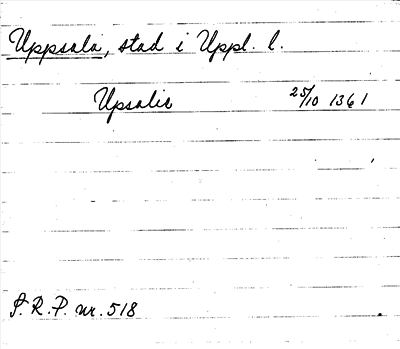 Uppsala, stad i Uppl. l.
Upsalie 25/10 1361
S.R.P. nr. 518